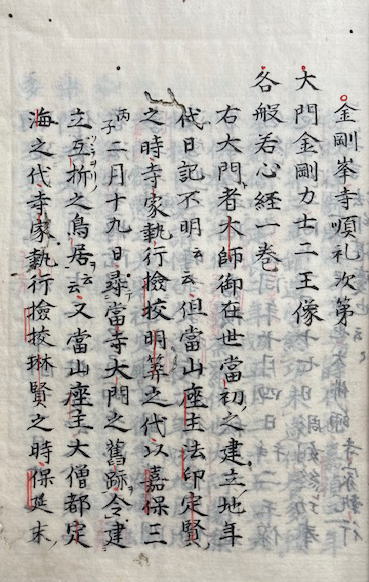 金剛峯寺順礼次第
大門金剛力士二王像
各般若心経一巻
右大門者大師御在世當初之建立地年
代日記不明云云但當山座主法印定賢
之時寺家執行撿挍明筭之代以嘉保三
丙子二月十九日尋當寺大門之舊跡令建
立五折之鳥居云云又當山座主大僧都定
海之代寺家執行撿挍琳賢之時保延末